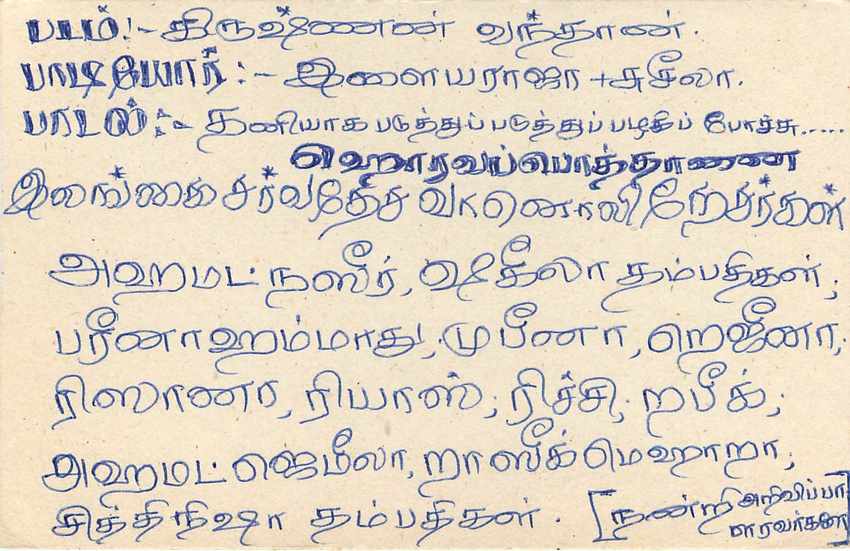 படம்:- கிருஷ்ணன் வந்தான்.
பாடியோர்:- இளையராஜா + சுசீலா.
பாடல்:- தனியாக படுத்துப் படுத்துப் பழகிப் போச்சு.....
ஹொரவப்பொத்தானை
இலங்கை சர்வதேச வானொலி நேசர்கள்
அஹமட் நஸீர், ஷகீலா தம்பதிகள்,
பரீனா ஹம்மாது, முபீனா, றெஜீனா,
ரிஸானா, ரியாஸ், ரிச்சி, றபீக்,
அஹமட் ஜெமீலா, றாஸீக் மெஹாறா,
சித்திநிஷா தம்பதிகள். [நன்றி அறிவிப்பா
ளரவர்களே]